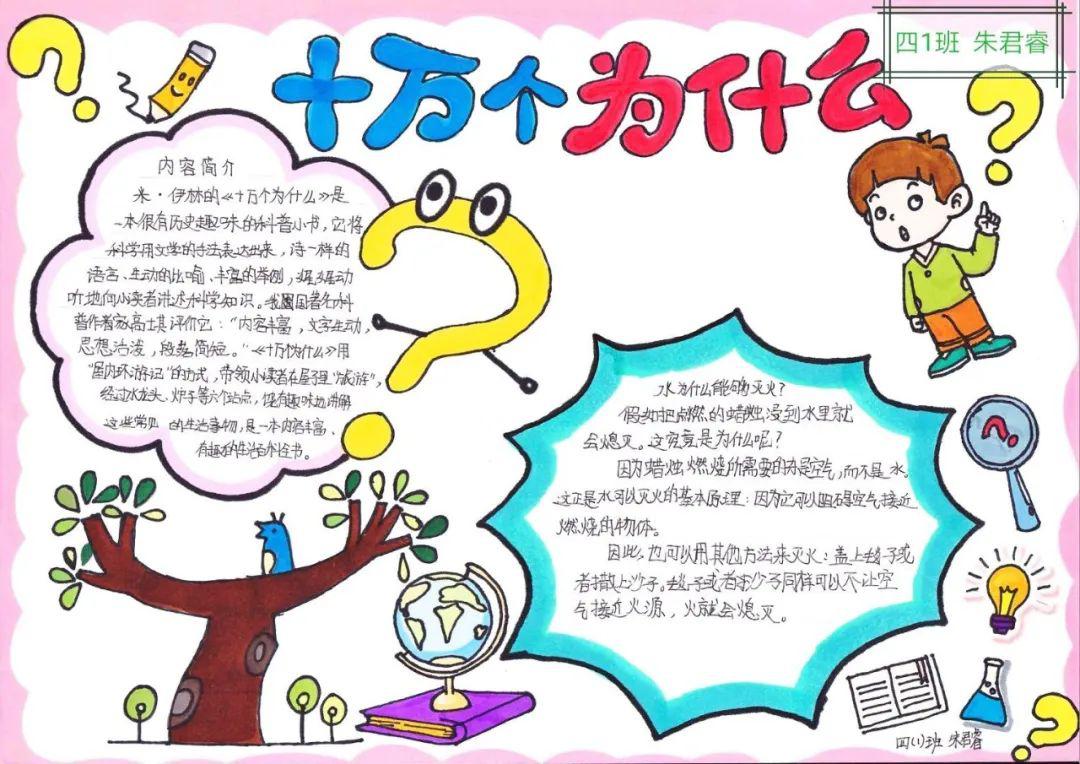 十万个为什么
四1班 朱君睿
内容简介
米·伊林的《十万个为什么》是
一本很有历史趣味的科普小书,它将
科学用文学的手法表达出来,诗一样的
语言、生动的比喻、丰富的举例,娓娓动
听地向小读者讲述科学知识。我国著名科
普作者家高士其评价它:“内容丰富,文字生动,
思想活泼,段落简短。”《十万个为什么》用
“屋内环游记”的方式,带领小读者在屋子里“旅游”,
经过水龙头、炉子等六个站点,很有趣味地讲解
这些常见 的生活事物,是一本内容丰富、
有趣的生活百科全书。
?
水为什么能够灭火?
假如把点燃的蜡烛浸到水里就
会熄灭。这究竟是为什么呢?
因为蜡烛燃烧所需要的是空气,而不是水。
这正是水可以灭火的基本原理:因为它可以阻碍空气接近
燃烧的物体。
因此,也可以用其他方法来灭火:盖上毯子或
者撒上沙子。毯子或者沙子同样可以不让空
气接近火源,火就会熄灭。
四(1)班 朱君睿